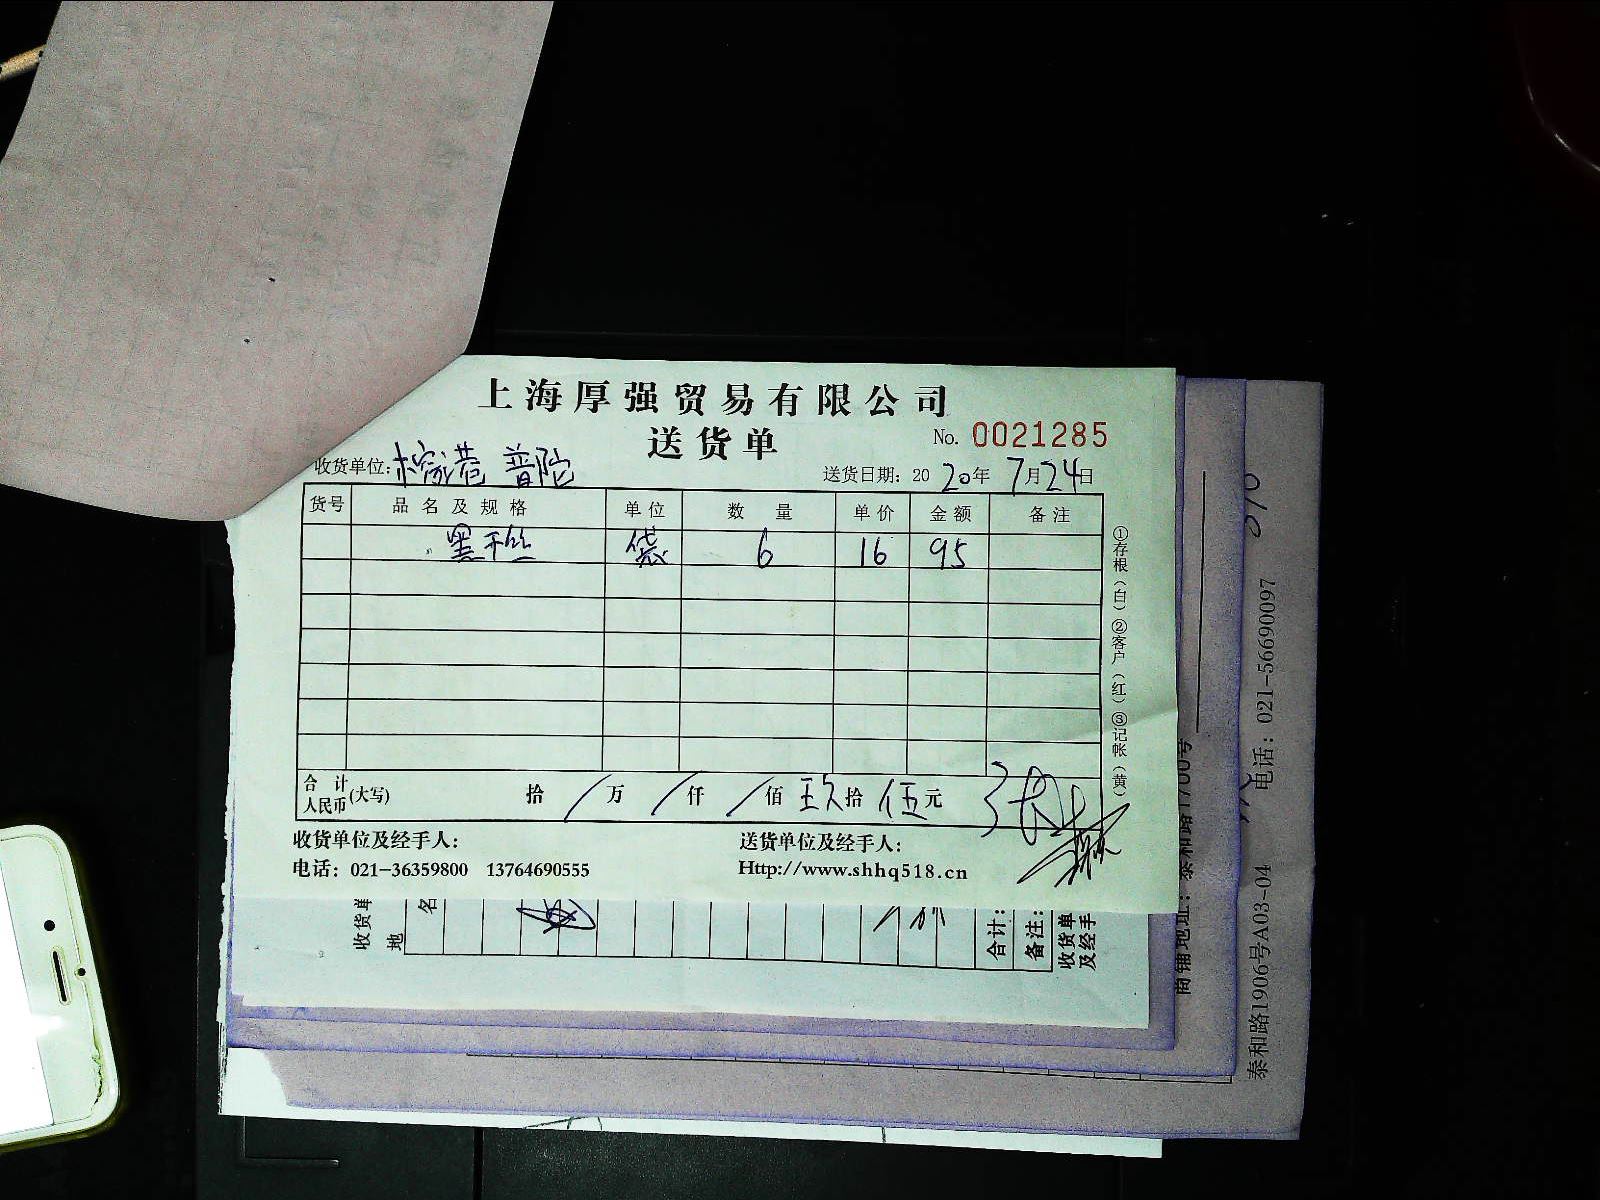 上海厚强贸易有限公司
送货单
No. 0021285
收货单位: 榕港 普陀
送货日期: 2020年7月24日
货号 品名及规格 单位 数量 单价 金额 备注
黑千丝 袋 6 16 95
①存根(白)②客户(红)③记帐(黄)
合计人民币(大写) 拾 / 万 / 仟 / 佰 玖拾 伍元
收货单位及经手人:
送货单位及经手人:
电话: 021-36359800 13764690555
Http://www.shhq518.cn
收货单
地
名
合计:
备注:
收货单
及经手
商铺地址: 泰和路1700号
泰和路1906号A03-04 电话: 021-56690097